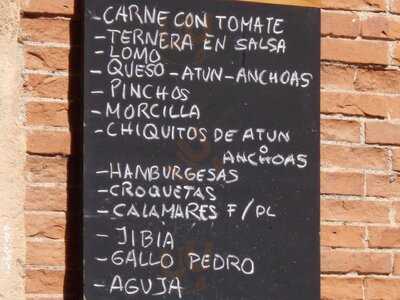 -CARNE CON TOMATE
-TERNERA EN SALSA
-LOMO
-QUESO-ATUN-ANCHOAS
-PINCHOS
-MORCILLA
-CHIQUITOS DE ATUN
O
ANCHOAS
-HAMBURGESAS
-CROQUETAS
-CALAMARES F/PL
-JIBIA
-GALLO PEDRO
-AGUJA